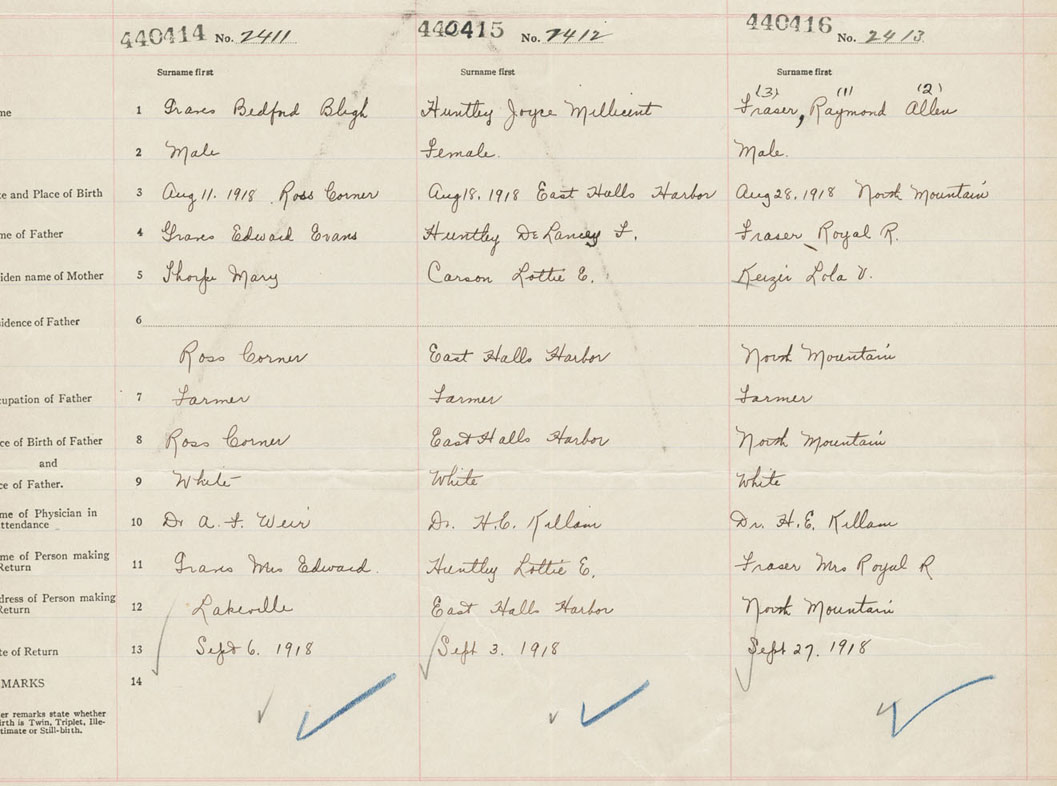 440414 No. 2411 440415 No. 2412 440416 No. 2413
Surname first Surname first Surname first
(3) (1) (2)
me 1 Graves Bedford Bligh Huntley Joyce Millicent Fraser, Raymond Allen
2 Male Female. Male.
te and Place of Birth 3 Aug 11. 1918 Ross Corner Aug 18, 1918 East Halls Harbor Aug 28, 1918 North Mountain
me of Father 4 Graves Edward Evans Huntley DeLancey F. Fraser Royal R.
iden name of Mother 5 Thorpe Mary Carson Lottie E. Keizer Lola V.
idence of Father 6
Ross Corner East Halls Harbor North Mountain
cupation of Father 7 Farmer Farmer Farmer
ce of Birth of Father 8 Ross Corner East Halls Harbor North Mountain
and
ce of Father. 9 White White White
me of Physician in
ttendance 10 Dr A. F. Weir Dr. H.E. Killam Dr. H. E. Killam
me of Person making
Return 11 Graves Mrs Edward. Huntley Lottie E. Fraser Mrs Royal R
dress of Person making
Return 12 Lakeville East Halls Harbor North Mountain
te of Return 13 Sept 6. 1918 Sept 3. 1918 Sept 27. 1918
MARKS 14
er remarks state whether
irth is Twin, Triplet, Ille-
timate or Still-birth.